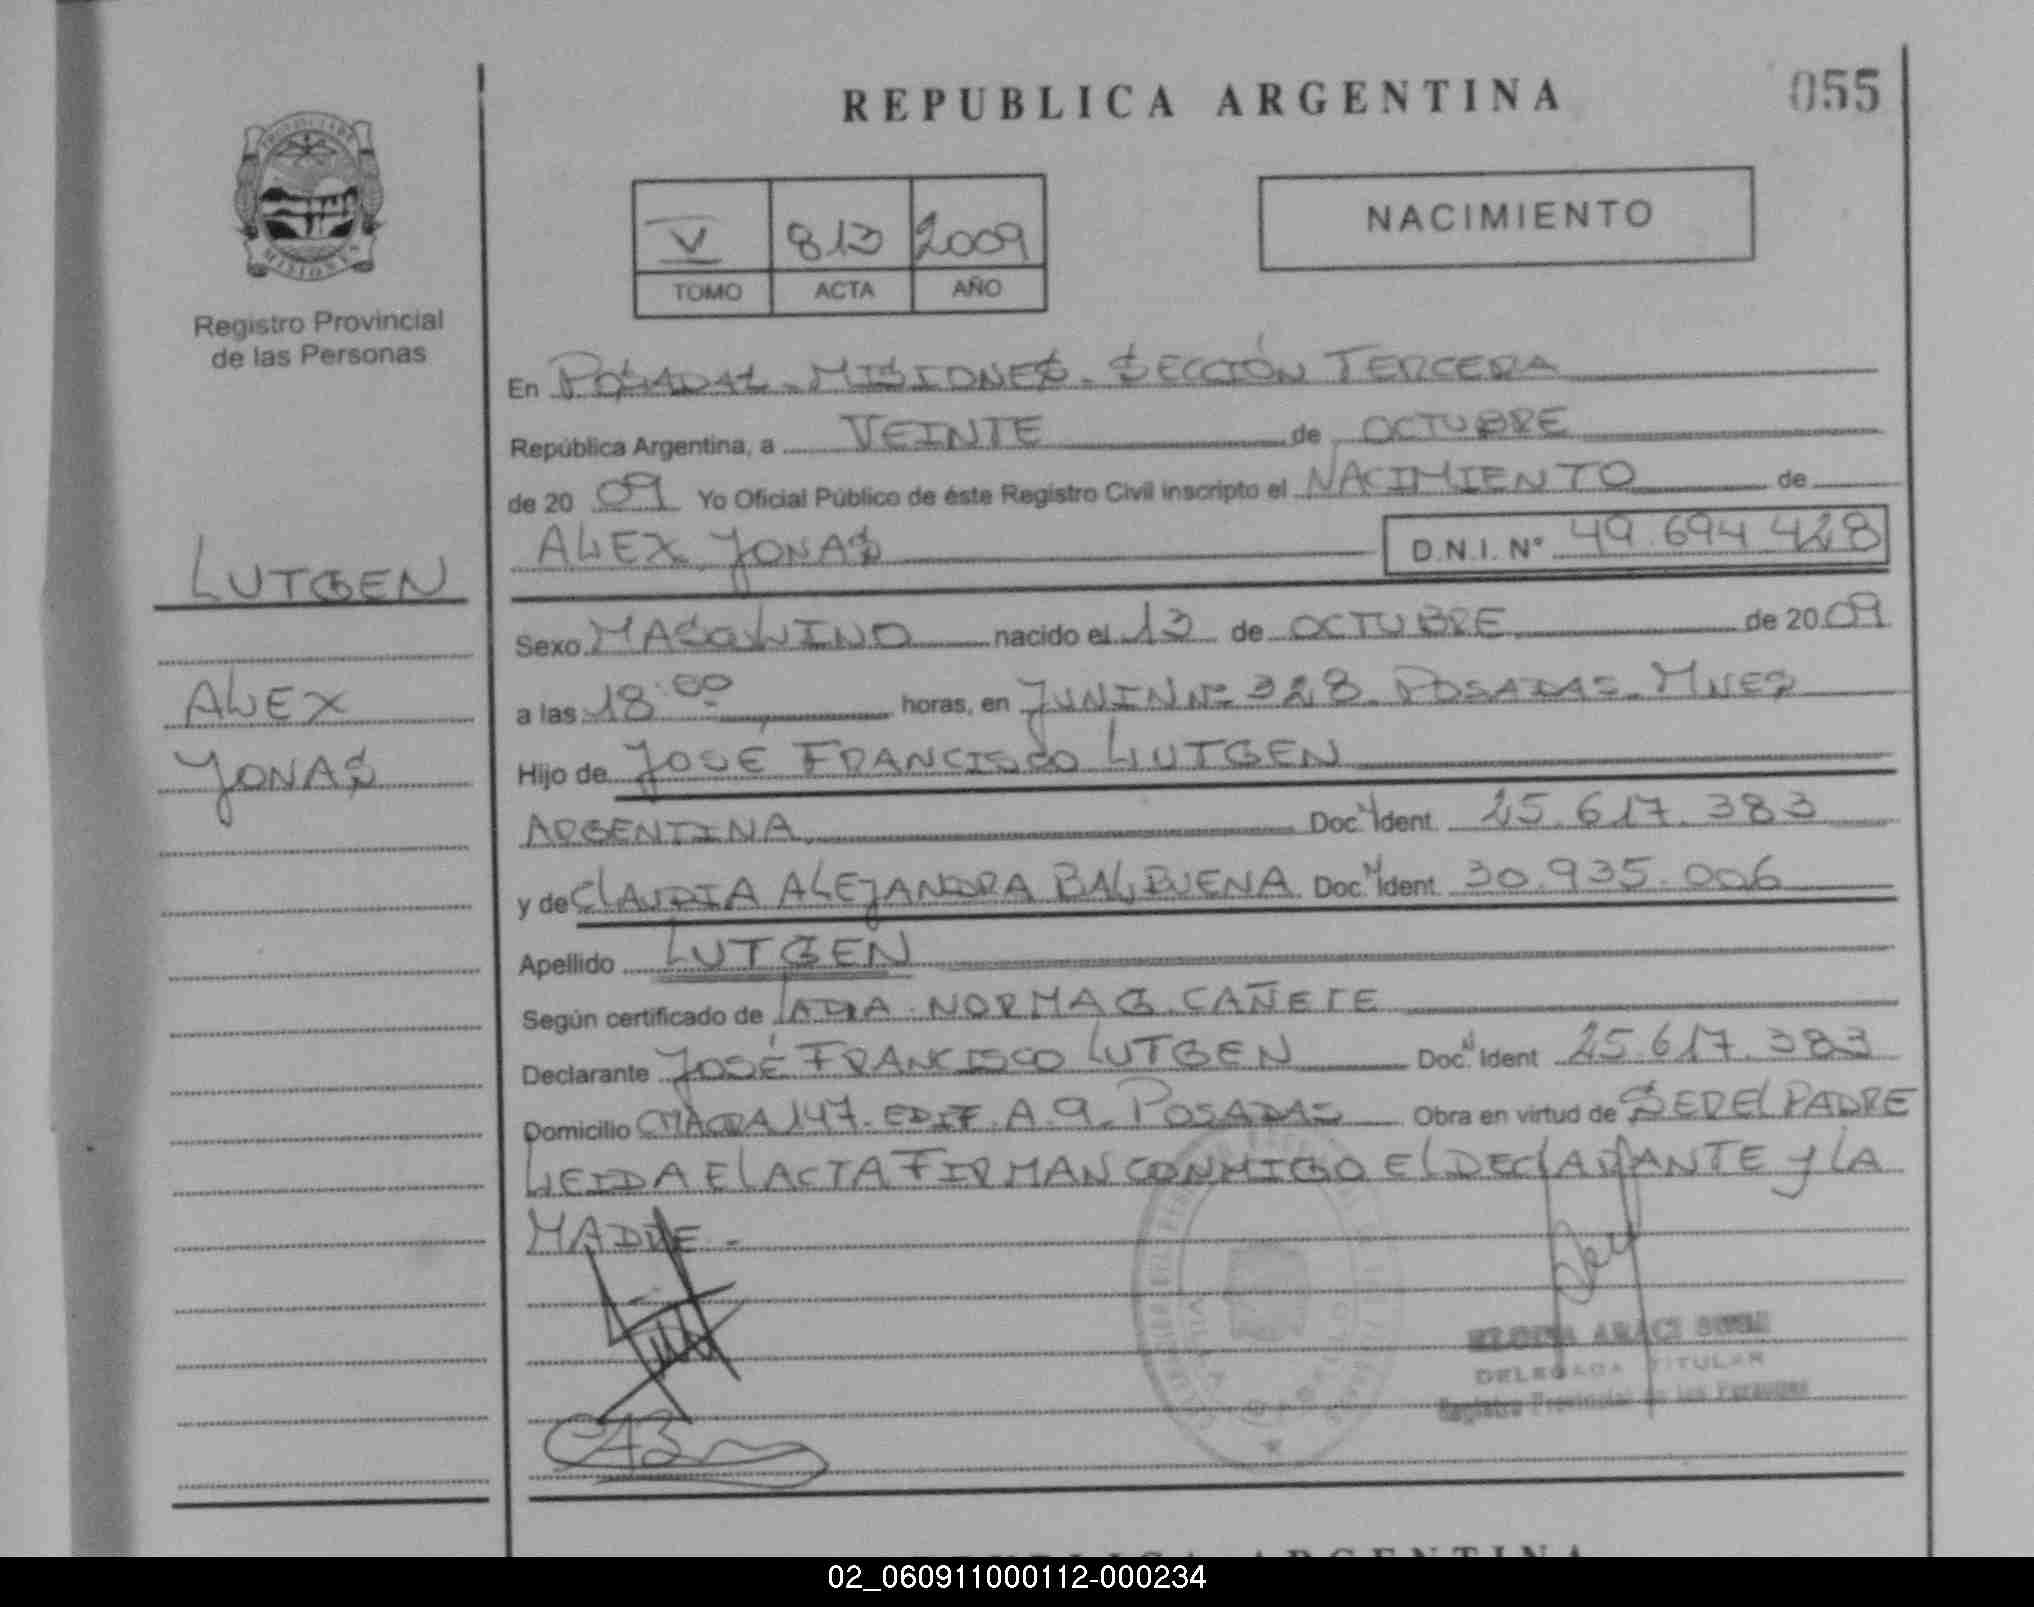 REPUBLICA ARGENTINA
055
V 813 2009
TOMO ACTA AÑO
NACIMIENTO
MISIONES
Registro Provincial
de las Personas
En POSADAS - MISIONES - SECCIÓN TERCERA
República Argentina, a VEINTE de OCTUBRE
de 20 09 Yo Oficial Público de éste Registro Civil inscripto el NACIMIENTO de
ALEX JONAS D.N.I. Nº 49.694.428
LUTGEN
ALEX
JONAS
Sexo MASCULINO nacido el 13 de OCTUBRE de 2009
a las 18:00 horas, en JUNIN Nº 328 - POSADAS - MNES
Hijo de JOSÉ FRANCISCO LUTGEN
ARGENTINA Doc. Ident. 25.617.383
y de CLAUDIA ALEJANDRA BALBUENA Doc. Ident. 30.935.006
Apellido LUTGEN
Según certificado de NORMA G. CAÑETE
Declarante JOSÉ FRANCISCO LUTGEN Doc. Ident 25.617.383
Domicilio CHACRA 147 - EDIF. A. 9 - POSADAS Obra en virtud de SER EL PADRE
LEIDA EL ACTA FIRMAN CONMIGO EL DECLARANTE Y LA
MADRE -
DELEGADA TITULAR
Registro Provincial de las Personas
REPUBLICA ARGENTINA
02_060911000112-000234